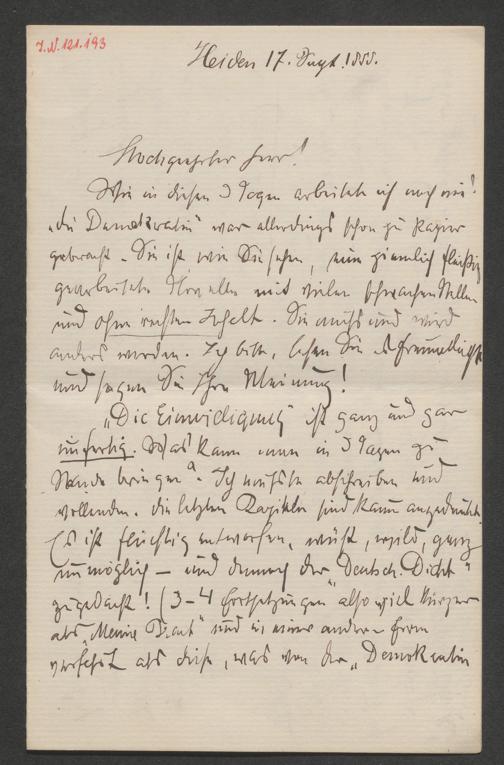 J.N. 121.193
Heiden 17. Sept. 1888.
Hochgeehrter Herr!
Wie in diesen 3 Tagen arbeitete ich noch nie!
"die Demokratin" war allerdings schon zu Papier
gebracht. Sie ist wie Sie sehen, eine ziemlich fleißig
gearbeitete Novelle mit vielen schwachen Stellen
und ohne rechten Inhalt. Sie muß und wird
anders werden. Ich bitte, lesen Sie es freundlichst
und sagen Sie Ihre Meinung!
"Die Einwilligung" ist ganz und gar
unfertig. Was kann man in 3 Tagen zu
Stande bringen? Ich müßte abschreiben und
vollenden. die letzten Kapitel sind kaum angedeutet.
Es ist flüchtig entworfen, wüst, wild, ganz
unmöglich – und dennoch der "Deutsch. Dicht"
zugedacht! (3–4 Fortsetzungen also viel kürzer
als "Meine " und in einer andern Form
verfaßt als diese, was von der "Demokratin